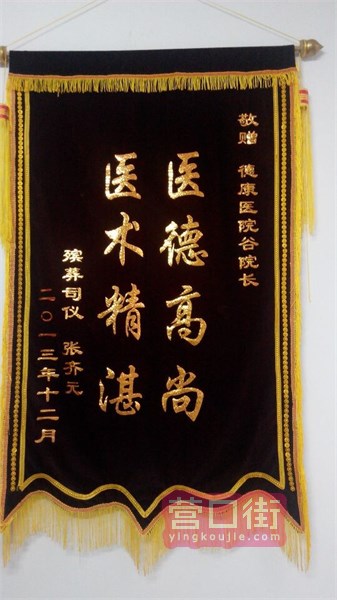 敬赠 德康医院谷院长
医德高尚
医术精湛
殡葬司仪 张齐元
二〇一三年十二月
营口街
yingkoujie.com